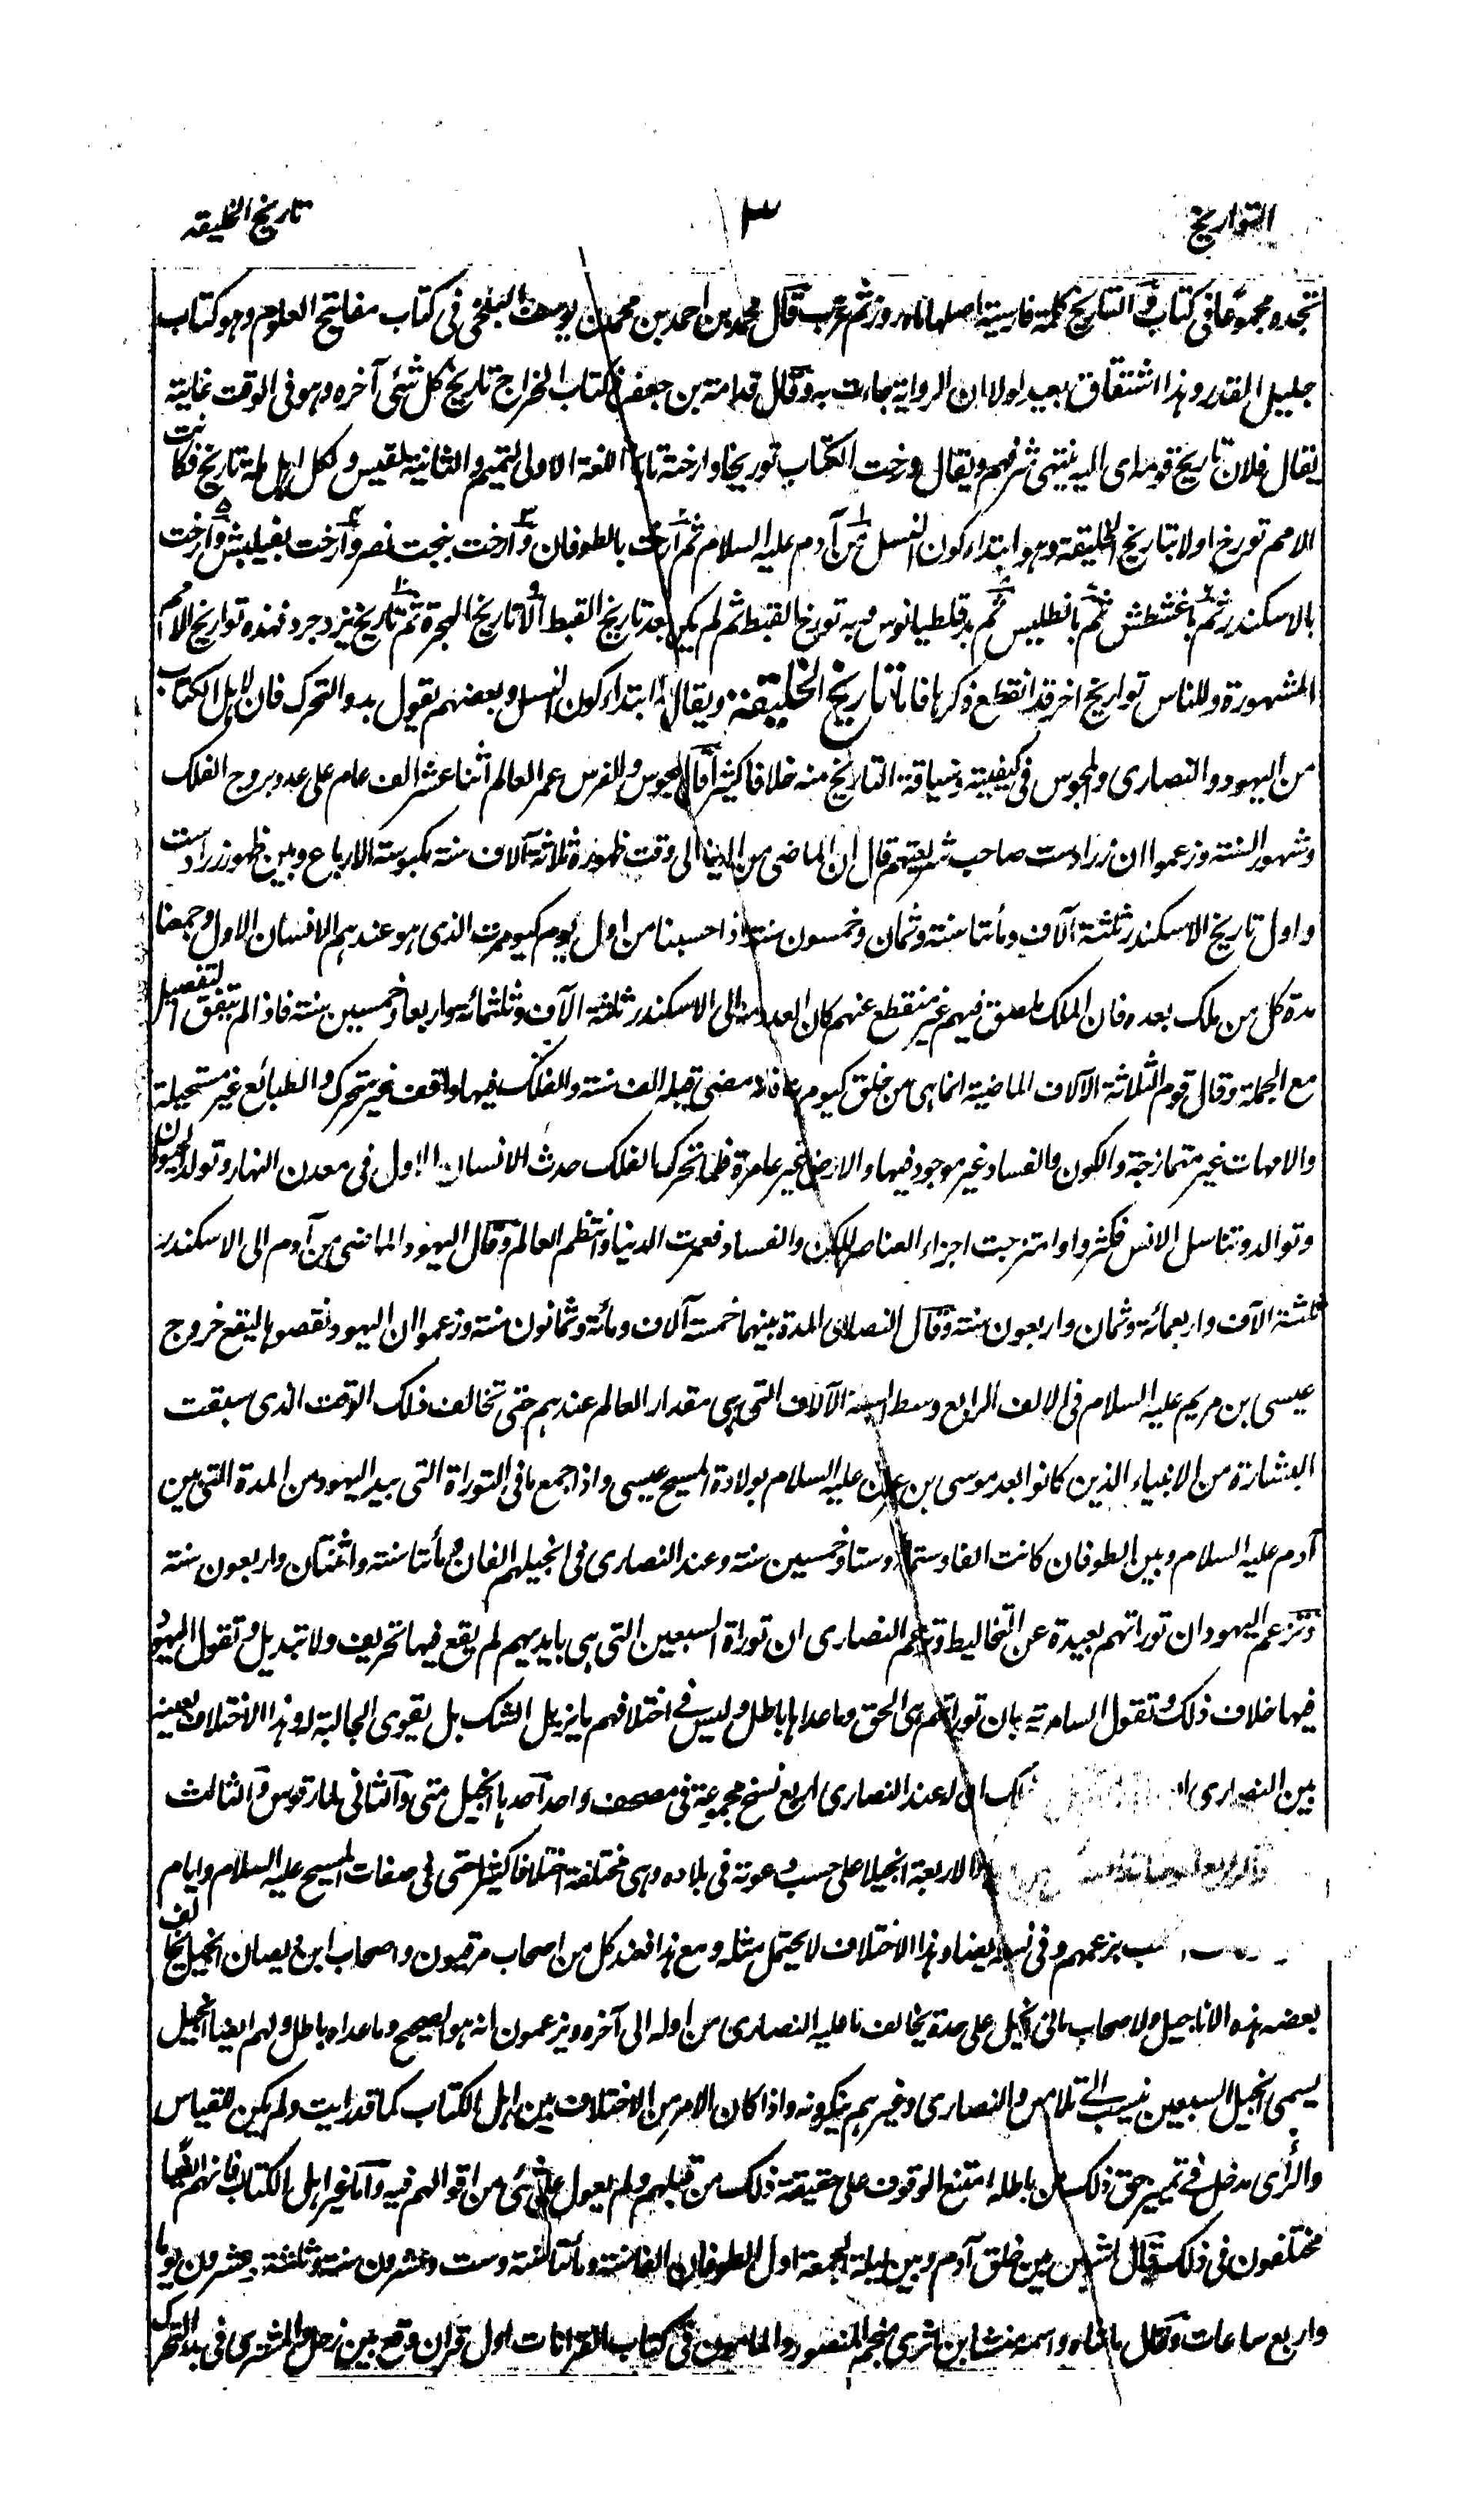 التواريخ ٣ تاريخ الخليقه
تجده مجموعا فى كتاب والتاريخ كلمة فارسية اصلها ماه روز ثم عرب قال محمد بن احمد بن محمد بن يوسف البلخى فى كتاب مفاتيح العلوم وهو كتاب
جليل القدر وهذا اشتقاق بعيد لولا ان الرواية جاءت به وقال قدامة بن جعفر فى كتاب الخراج تاريخ كل شئى آخره وهو فى الوقت غايته
يقال فلان تاريخ قومه اى اليه ينتهى شرفهم ويقال ورخت الكتاب توريخا وارخته تاريخا اللغة الاولى لتميم والثانية لقيس ولكل اهل ملة تاريخ فكانت
الامم تورخ اولا بتاريخ الخليقة وهو ابتداء كون النسل من آدم عليه السلام ثم ارخت بالطوفان وارخت ببخت نصر وارخت بفيلبش وارخت
بالاسكندر ثم باغشطش ثم بانطليس ثم بدقلطيانوس وبه تورخ القبط ثم لم يكن بعد تاريخ القبط الا تاريخ الهجرة ثم تاريخ يزدجرد فهذه تواريخ الامم
المشهورة وللناس تواريخ اخر قد انقطع ذكرها فاما تاريخ الخليقة ويقال له ابتداء كون النسل وبعضهم يقول بدو التحرك فان لاهل الكتاب
من اليهود والنصارى والمجوس فى كيفيته وسياقة التاريخ منه خلافا كثيرا قال المجوس والفرس عمر العالم اثنا عشر الف عام على عدد بروج الفلك
وشهور السنة وزعموا ان زرادست صاحب شريعتهم قال ان الماضى من الدنيا الى وقت ظهوره ثلاثة آلاف سنة مكبوسة الارباع وبين ظهور زرادست
واول تاريخ الاسكندر ثلثة آلاف ومأتا سنة وثمان وخمسون سنة واذا حسبنا من اول يوم كيومرت الذى هو عندهم الانسان الاول وجمعنا
مدة كل من ملك بعده فان الملك ملصق فيهم غير منقطع عنهم كان العدد منه الى الاسكندر ثلثة آلاف وثلثمائة واربعا وخمسين سنة فاذا لم يتفق التفصيل
مع الجملة وقال قوم الثلاثة الآلاف الماضية انما هى من خلق كيومرت فانه مضى قبله الف سنة والفلك فيها واقف غير متحرك والطبائع غير مستحيلة
والامهات غير متمازجة والكون والفساد غير موجود فيها والارض غير عامرة فلما تحرك الفلك حدث الانسان الاول فى معدن النهار وتولد الحيوان
وتوالد وتناسل الانس فكثروا وامتزجت اجزاء العناصر للكون والفساد فعمرت الدنيا وانتظم العالم وقال اليهود الماضى من آدم الى الاسكندر
ثلثة آلاف واربعمائة وثمان واربعون سنة وقال النصارى المدة بينهما خمسة آلاف ومائة وثمانون سنة وزعموا ان اليهود نقصوها ليقع خروج
عيسى بن مريم عليه السلام فى الالف الرابع وسط السبعة الآلاف التى هى مقدار العالم عندهم حتى تخالف ذلك الوقت الذى سبقت
البشارة من الانبياء الذين كانوا بعد موسى بن عمران عليه السلام بولادة المسيح عيسى واذا جمع ما فى التوراة التى بيد اليهود من المدة التى بين
آدم عليه السلام وبين الطوفان كانت الفا وستمائة وستا وخمسين سنة وعند النصارى فى انجيلهم الفان ومأتا سنة واثنتان واربعون سنة
وتزعم اليهود ان توراتهم بعيدة عن التخاليط وتزعم النصارى ان توراة السبعين التى هى بايديهم لم يقع فيها تحريف ولا تبديل وتقول اليهود
فيها خلاف ذلك وتقول السامرية بان توراتهم هى الحق وما عداها باطل وليس فى اختلافهم ما يزيل الشك بل يقوى الجالبة له وهذا الاختلاف بعينه
بين النصارى ان له عند النصارى اربع نسخ مجموعة فى مصحف واحد احدها انجيل متى والثانى لمارقوس والثالث
الاربعة انجيلا على حسب دعوته فى بلاده وهى مختلفة اختلافا كثيرا حتى فى صفات المسيح عليه السلام وايام
بزعمهم وفى نسبه ايضا وهذا الاختلاف لا يحتمل مثله ومع هذا فعند كل من اصحاب مرقيون واصحاب ابن ديصان انجيل يخالف
بعضه هذه الاناجيل ولاصحاب مانى انجيل على حدة يخالف ما عليه النصارى من اوله الى آخره ويزعمون انه هو الصحيح وما عداه باطل ولهم ايضا انجيل
يسمى انجيل السبعين ينسب الى تلامس والنصارى وغيرهم ينكرونه واذا كان الامر من الاختلاف بين اهل الكتاب كما قد رايت ولم يكن للقياس
والرأى مدخل فى تمييز حق ذلك من باطله امتنع الوقوف على حقيقة ذلك من قبلهم ولم يعول على شئى من اقوالهم فيه واما غير اهل الكتاب فانهم ايضا
مختلفون فى ذلك قال بين خلق آدم وبين ليلة الجمعة اول الطوفان الفا سنة ومأتا سنة وست وعشرون سنة وثلثة وعشرون يوما
واربع ساعات وقال ماشاء الله واسمه منشا بن اثرى منجم المنصور والمامون فى كتاب القرانات اول قران وقع بين زحل والمشترى فى بدو التحرك